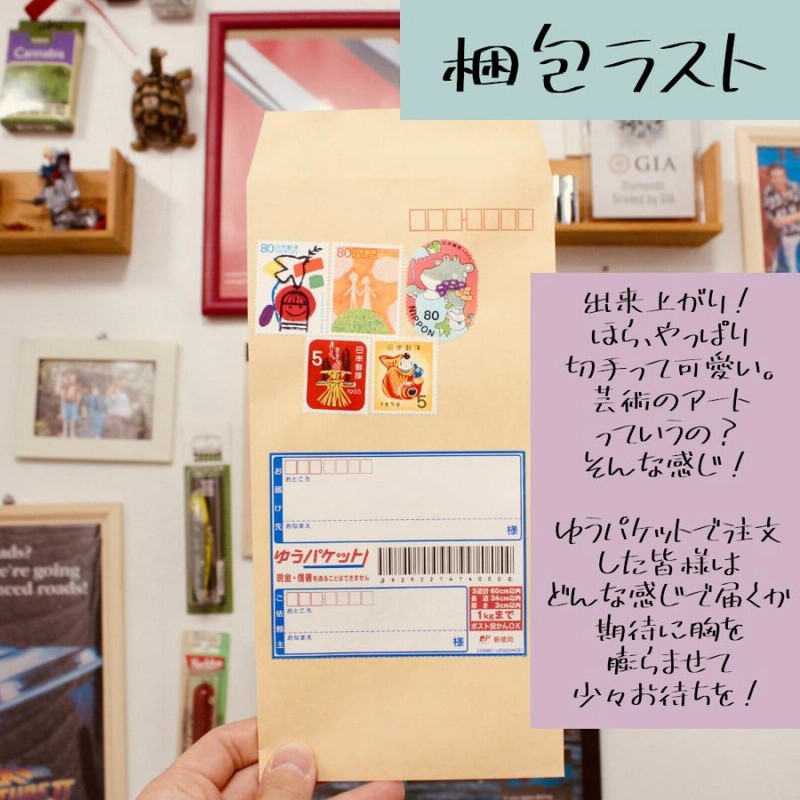 梱包ラスト
出来上がり!
ほら、やっぱり
切手って可愛い。
芸術のアート
っていうの?
そんな感じ!
ゆうパケットで注文
した皆様は
どんな感じで届くか
期待に胸を
膨らませて
少々お待ちを!
Cannabis
GIA
Diamonds
Graded by GIA
80 日本郵便
80 日本郵便
80
NIPPON
5 日本郵便
1965
日本郵便
1959 5
お届け先
おところ
おなまえ
様
ゆうパケット
現金・信書を送ることはできません
ご依頼主
おところ
おなまえ
様
3辺計60cm以内
長辺34cm以内
厚さ3cm以内
1kgまで
ポスト投かんOK
郵便局
ads?
e're going
need roads!